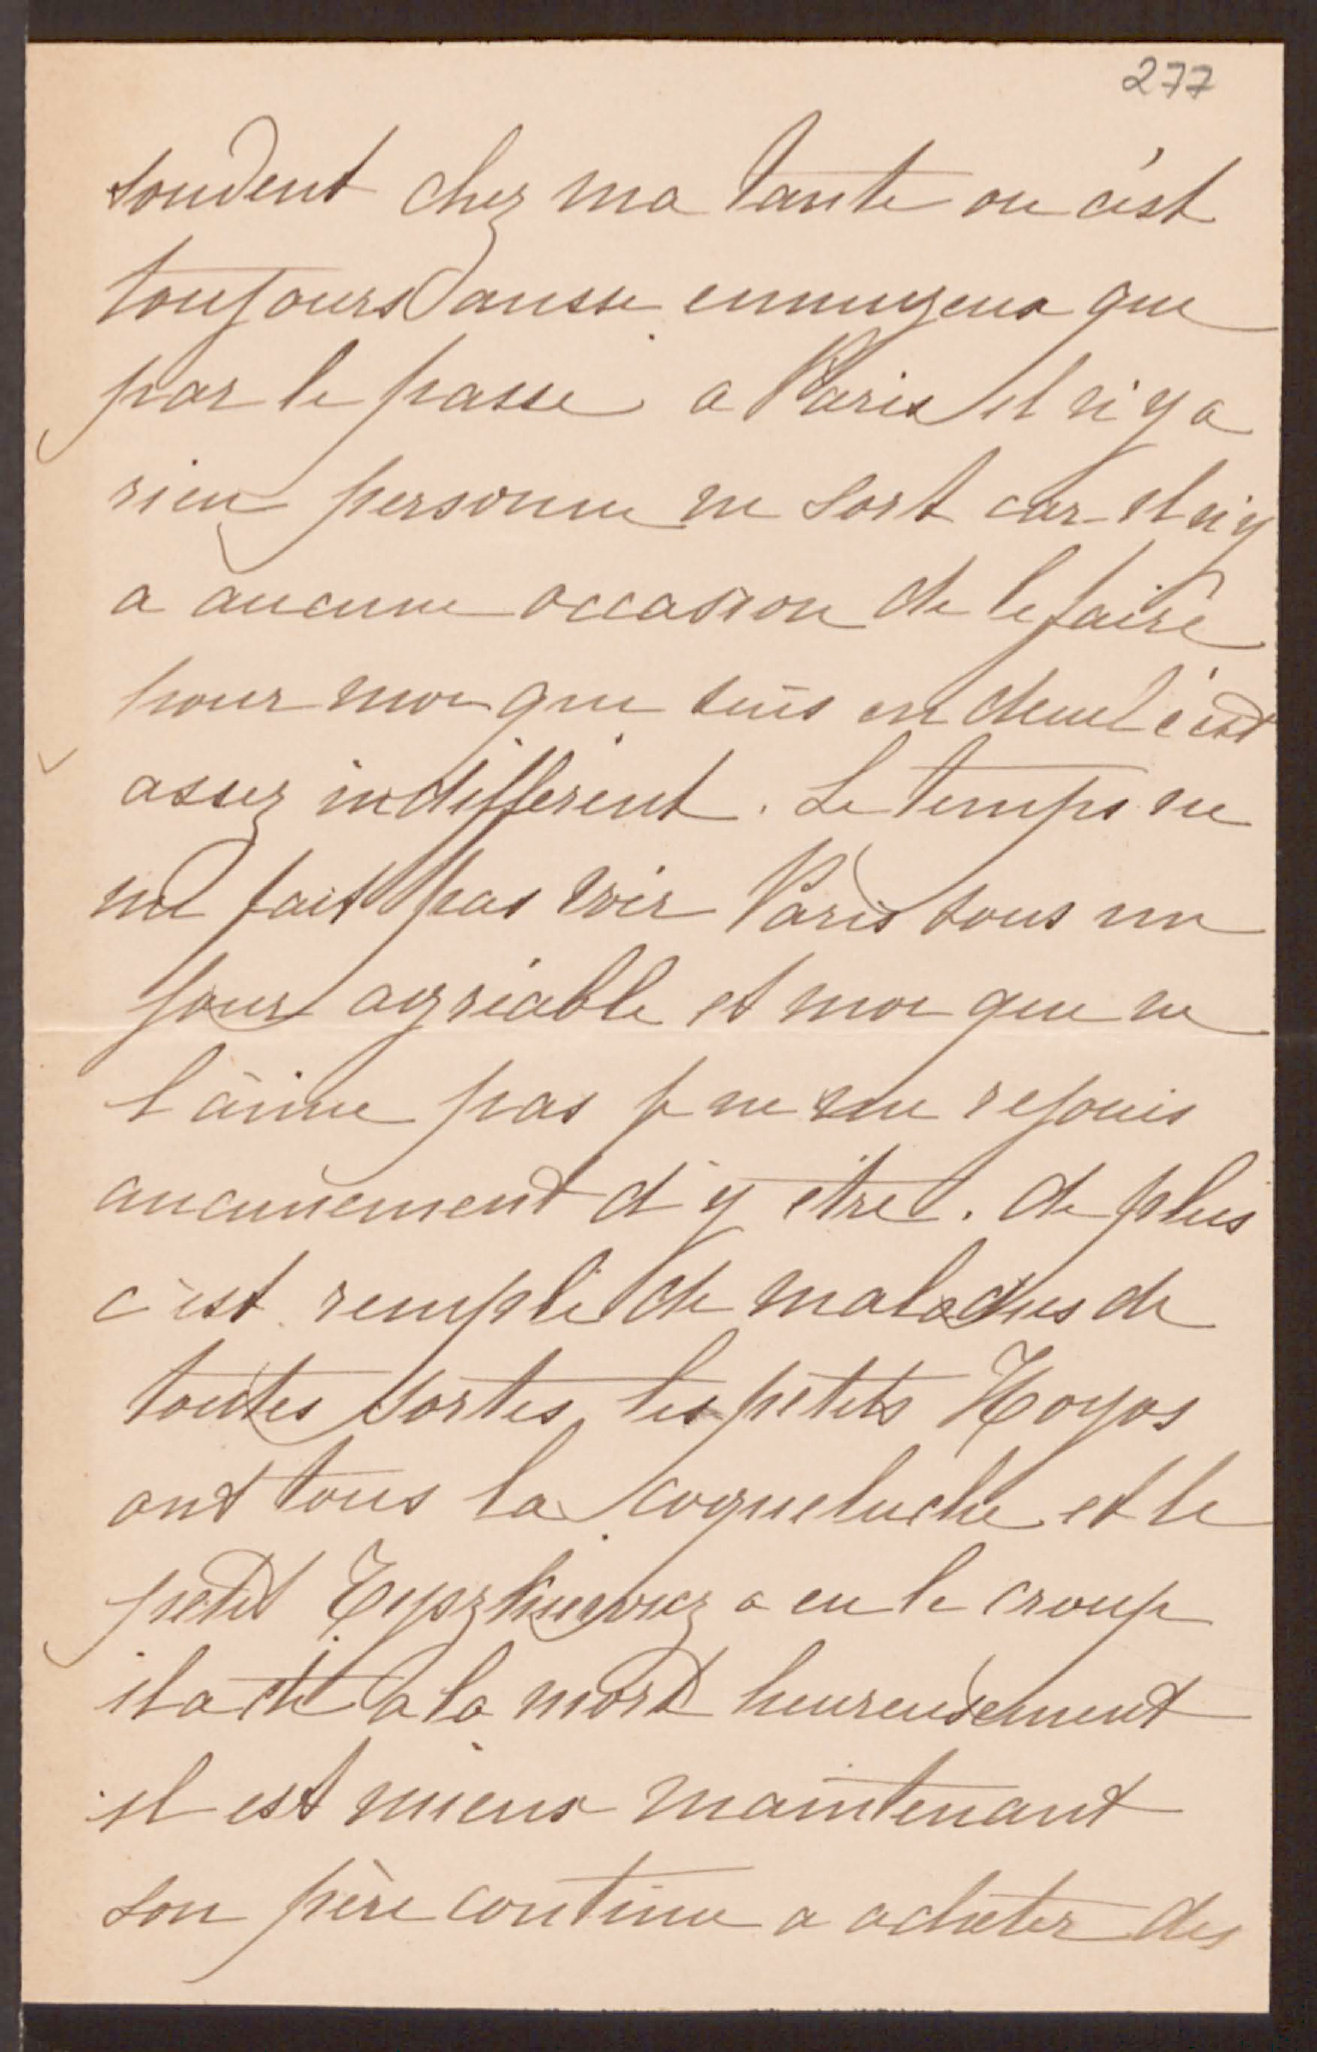 277
souvent chez ma tante ou c'est
toujours aussi ennuyeux que
par le passe a Paris il n'y a
rien personne ne sort car il n'y
a aucune occasion de le faire
pour moi qui suis en deuil c'est
assez indifferent. Le temps ne
me fait pas voir Paris sous un
jour agréable et moi qui ne
l'aime pas je ne me rejouis
aucunement d'y être. de plus
c'est rempli de maladies de
toutes sortes les petits Hoyos
ont tous la coqueluche et le
petit a eu le croup
il a été a la mort heureusement
il est mieux maintenant
son père continue a acheter des